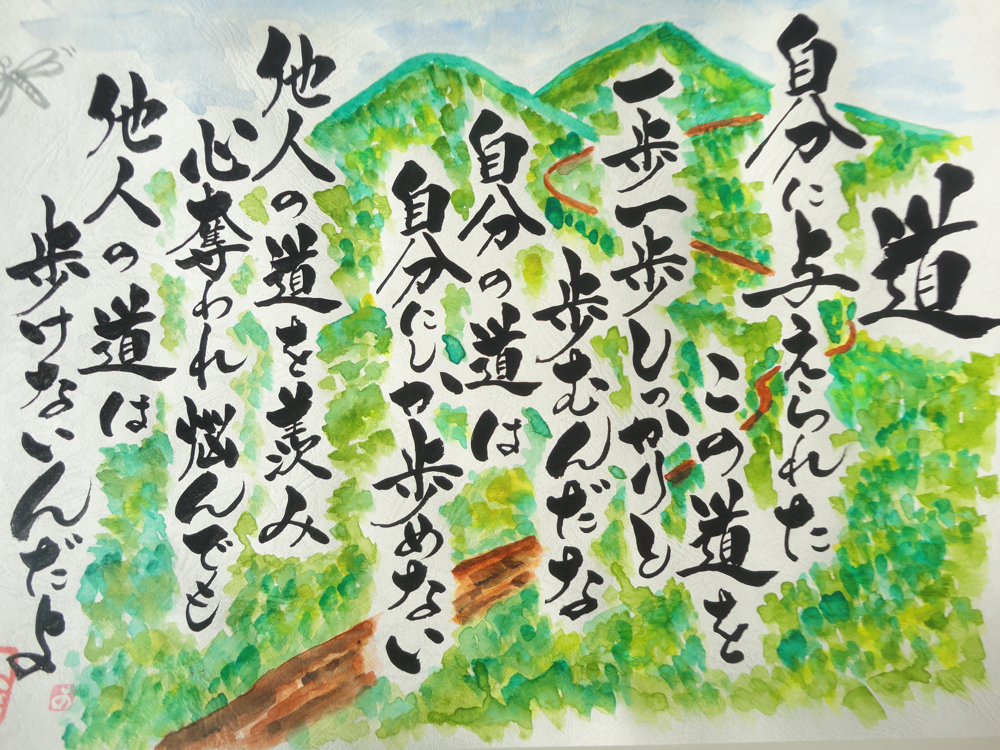 道
自分に与えられた
この道を
一歩一歩しっかりと
歩むんだな
自分の道は
自分にしか歩めない
他人の道を羨み
心奪われ悩んでも
他人の道は
歩けないんだよ